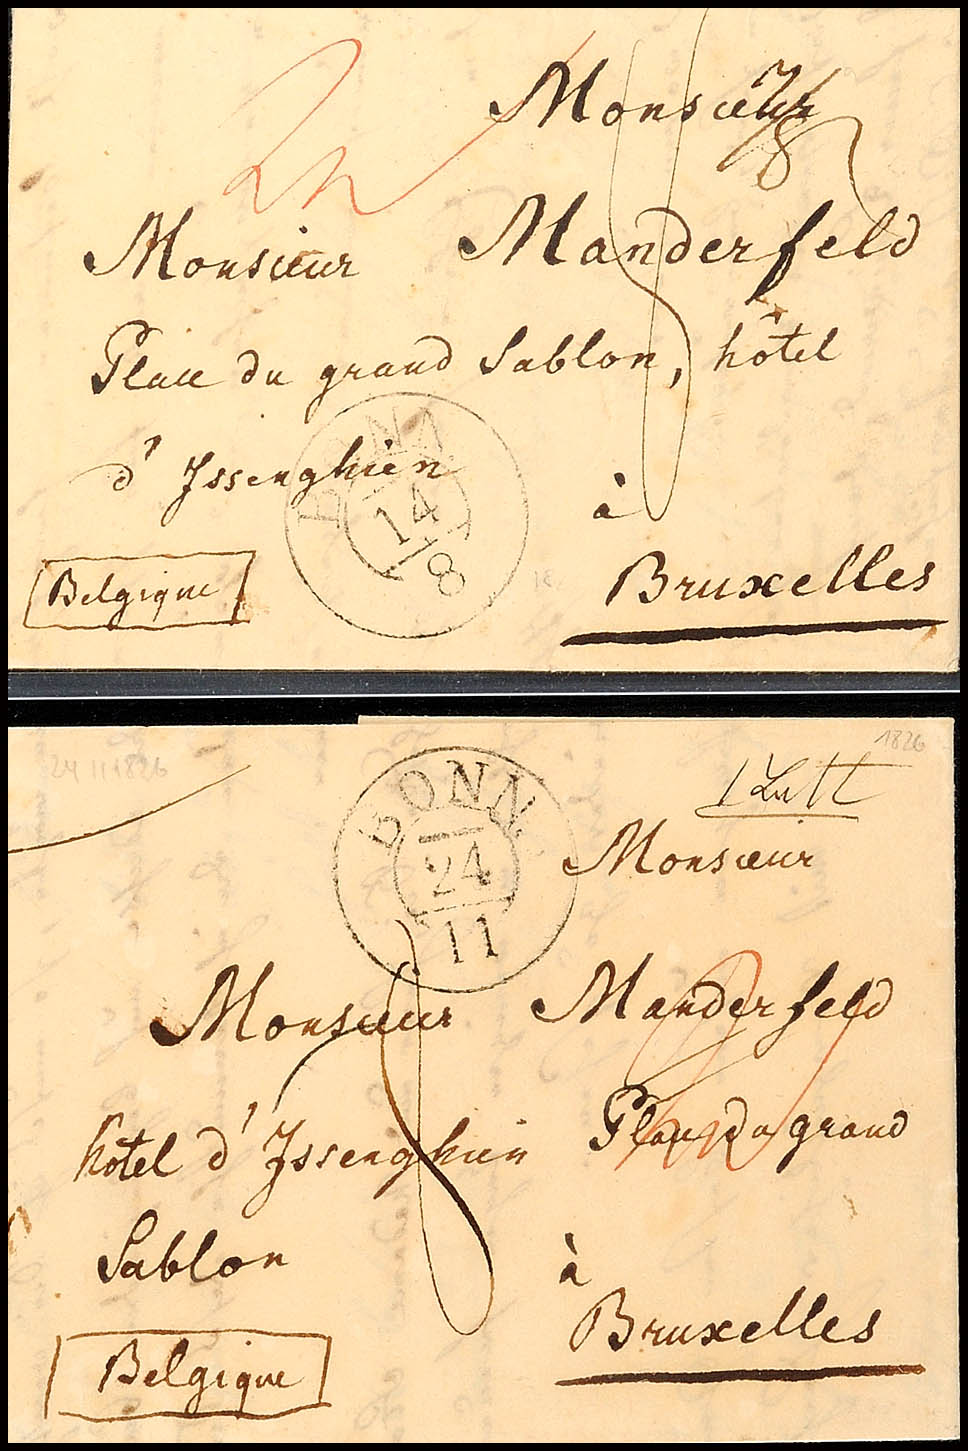 Monsieur
Monsieur Manderfeld
Place du grand Sablon, hôtel
d'Issenghien
à
Bruxelles
Belgique
BONN
14
8
24 11 1826
1826
BONN
24
11
Monsieur
Monsieur Manderfeld
hôtel d'Issenghien Place du grand
Sablon
à
Bruxelles
Belgique